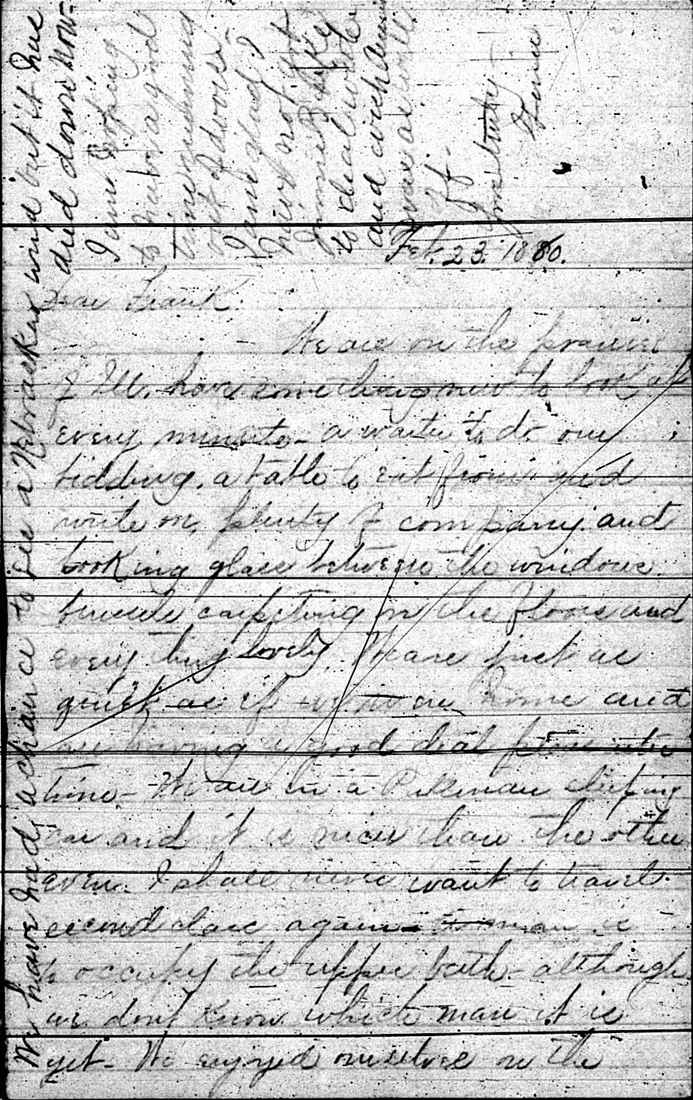 Feb. 23. 1880.
Dear Frank.
We are on the prairies
of Ill. have something new to look at
every minute - a waiter to do our
bidding, a table to eat from and
write on, plenty of company and
looking glass between the windows
carpeting on the floors and
every thing lovely. We are just as
quiet as if at home and
are having a good deal
time - We are in a Pullman sleeping
car and it is nicer than the other
even. I shall never want to travel
second class again - man is
to occupy the upper berth - although
we dont know which man it is
yet - We enjoyed ourselves on the
We have had a chance to see a Nebraska wind but it has
died down now -
I am hoping
to have a good
time
but I
I am glad I
have not got
to deal with
and wish
was as well
off.